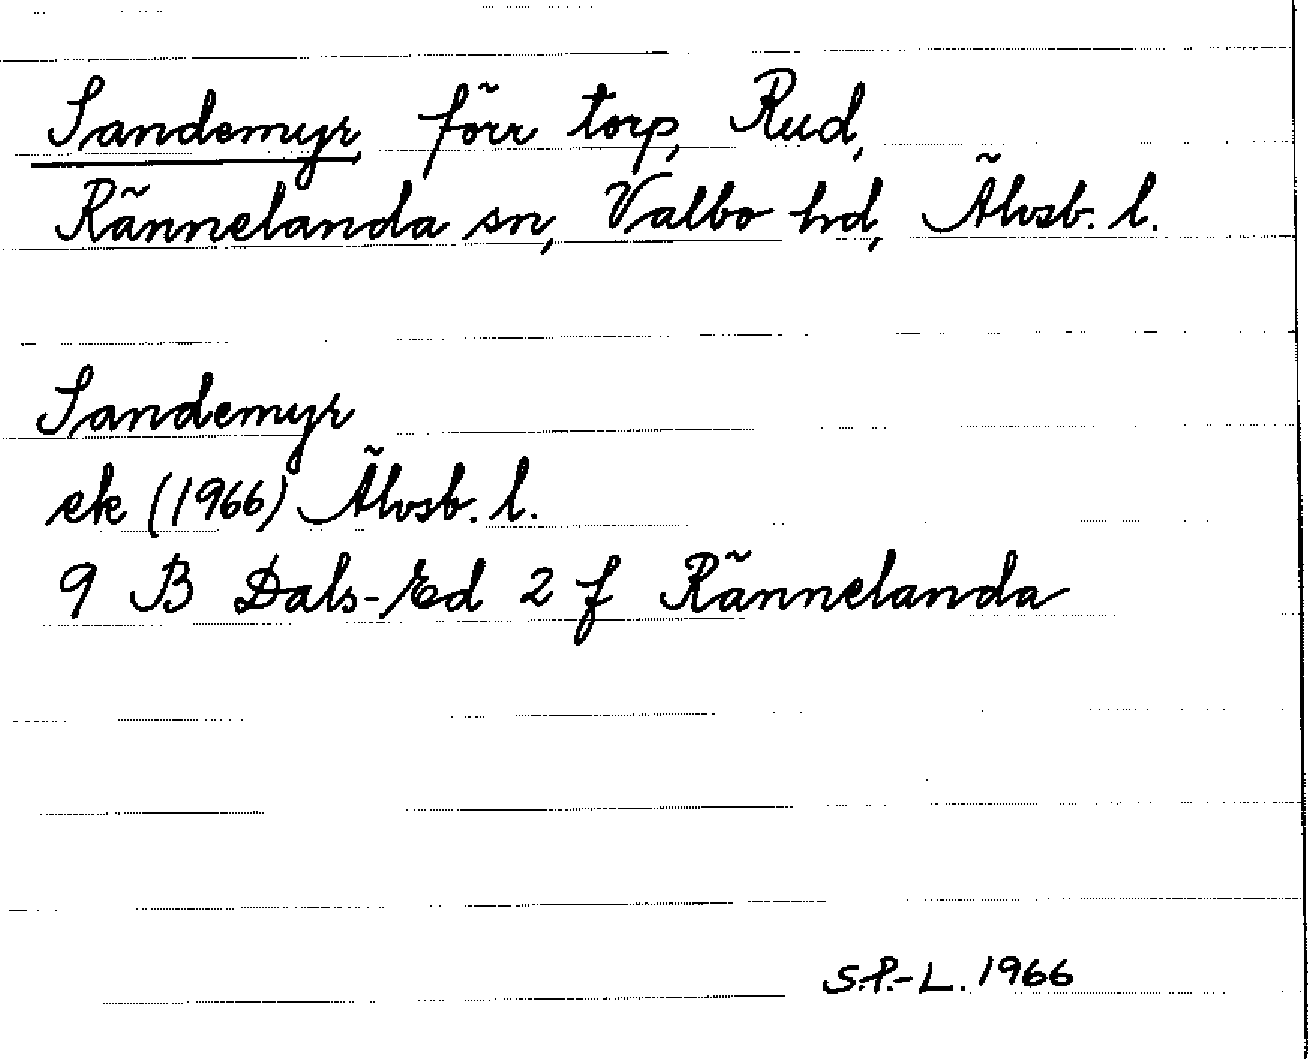 Sandemyr, förr torp, Rud,
Rännelanda sn, Valbo hd, Älvsb. l.
Sandemyr
ek (1966) Älvsb. l.
9 B Dals-Ed 2 f Rännelanda
S.P.-L. 1966